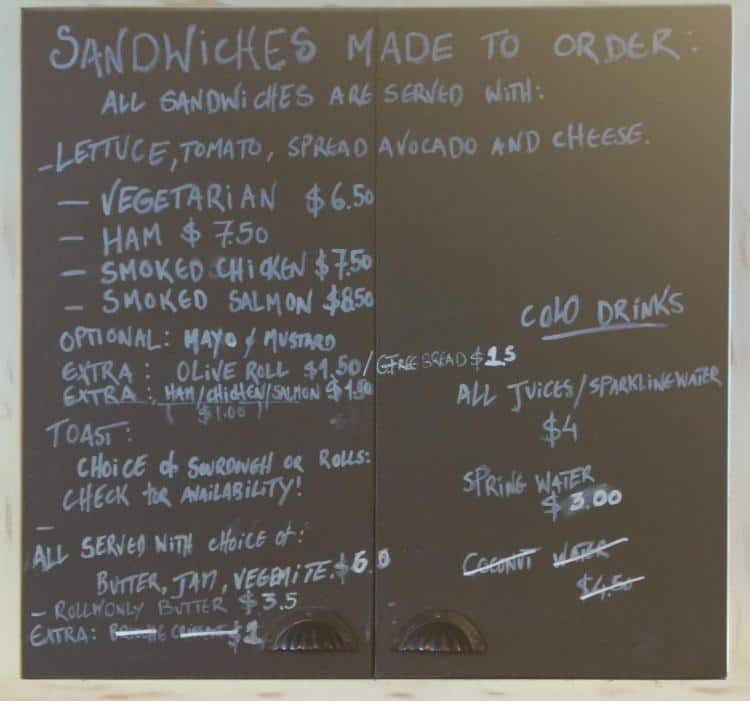 SANDWiCHES MADE TO ORDER:
ALL SANDWiCHES ARE SERVED WiTH:
–LETTUCE, TOMATO, SPREAD AVOCADO AND CHEESE.
– VEGETARiAN $6.50
– HAM $ 7.50
– SMOKED CHiCKEN $7.50
– SMOKED SALMON $8.50
OPTIONAL: MAYO & MUSTARD
EXTRA: OLiVE ROLL $1.50/GFREE BREAD $1.5
EXTRA: HAM/CHiCKEN/SALMON $1.50
($1.00)
TOAST:
CHOiCE of SOURDOUGH OR ROLLS:
CHECK for AVAiLABiLiTY!
–
ALL SERVED WiTH CHOiCE of:
BUTTER, JAM, VEGEMiTE. $6.0
– ROLL W ONLY BUTTER $3.5
EXTRA: $1
COLD DRiNKS
ALL JUiCES/SPARKLiNG WATER
$4
SPRiNG WATER
$3.00
COCONUT WATER
$4.50